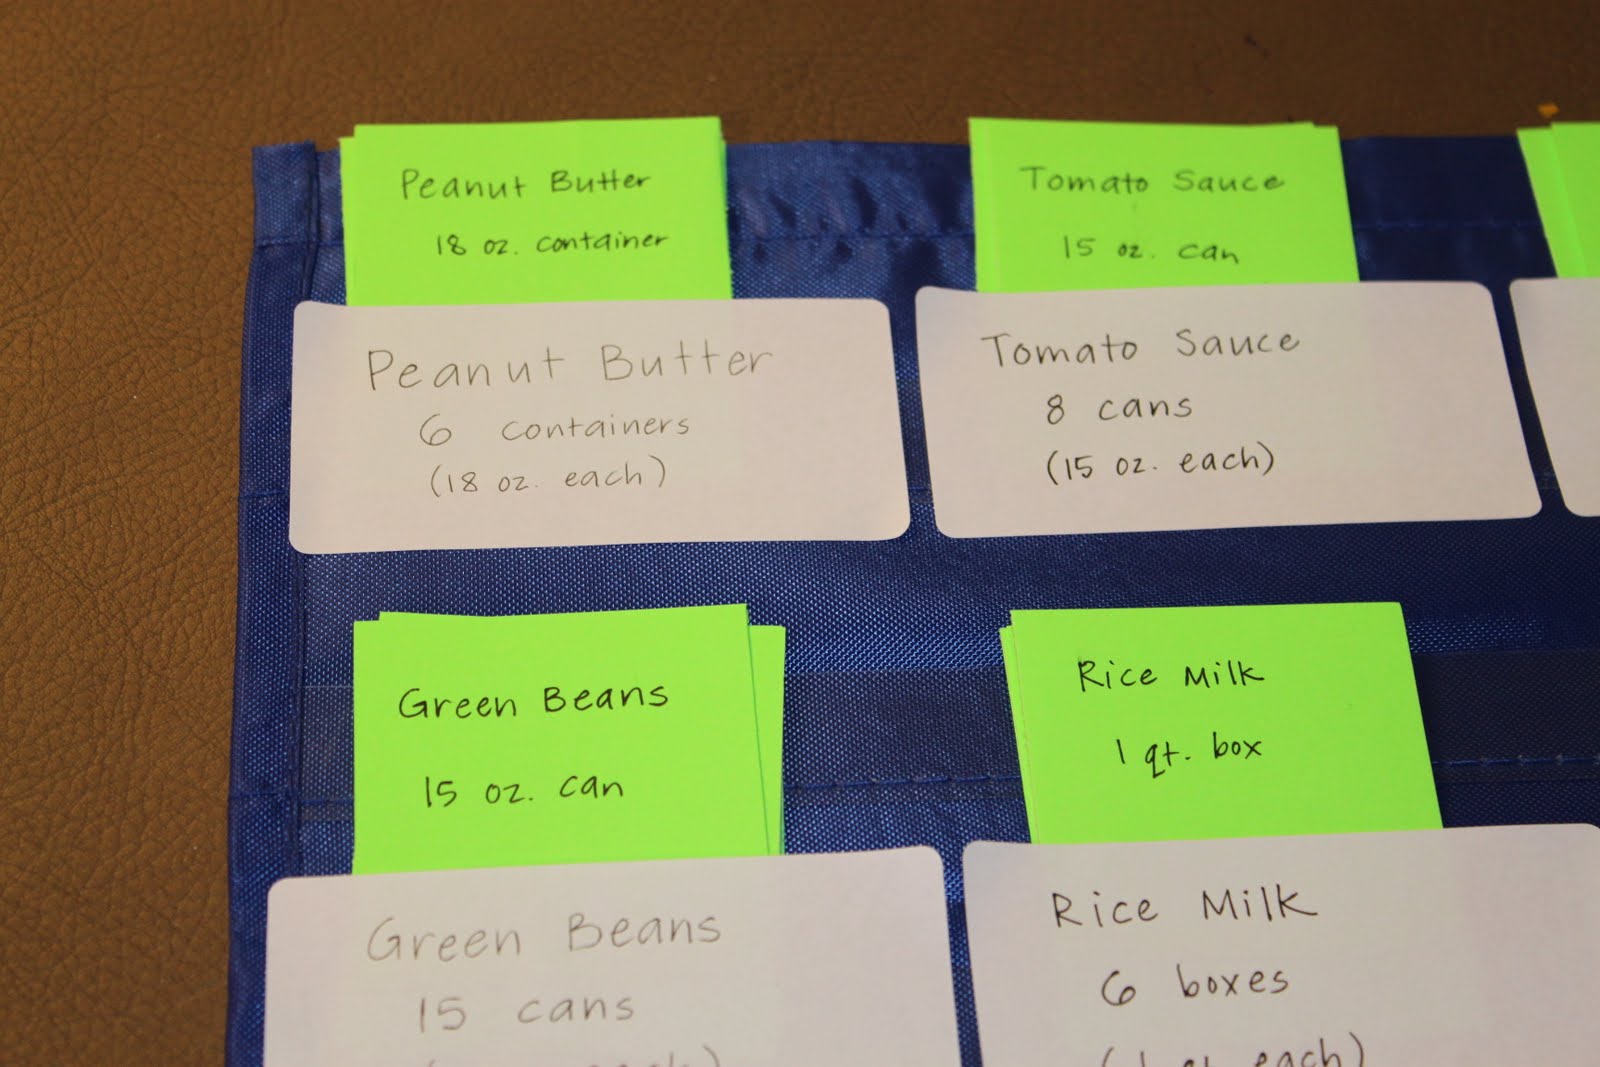 Peanut Butter
18 oz. container
Peanut Butter
6 containers
(18 oz. each)
Tomato Sauce
15 oz. can
Tomato Sauce
8 cans
(15 oz. each)
Green Beans
15 oz. can
Green Beans
15 cans
Rice Milk
1 qt. box
Rice Milk
6 boxes
(1 qt. each)